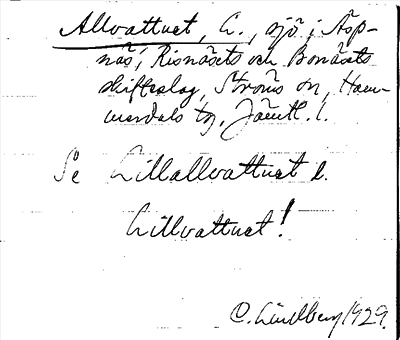 Allvattnet, L., sjö i Äsp-
näs', Risnäsets och Bonäsets
skifteslag, Ströms sn, Ham-
merdals tg, Jämtl. l.
Se Lillallvattnet l.
Lillvattnet!
C. Lindberg 1929.